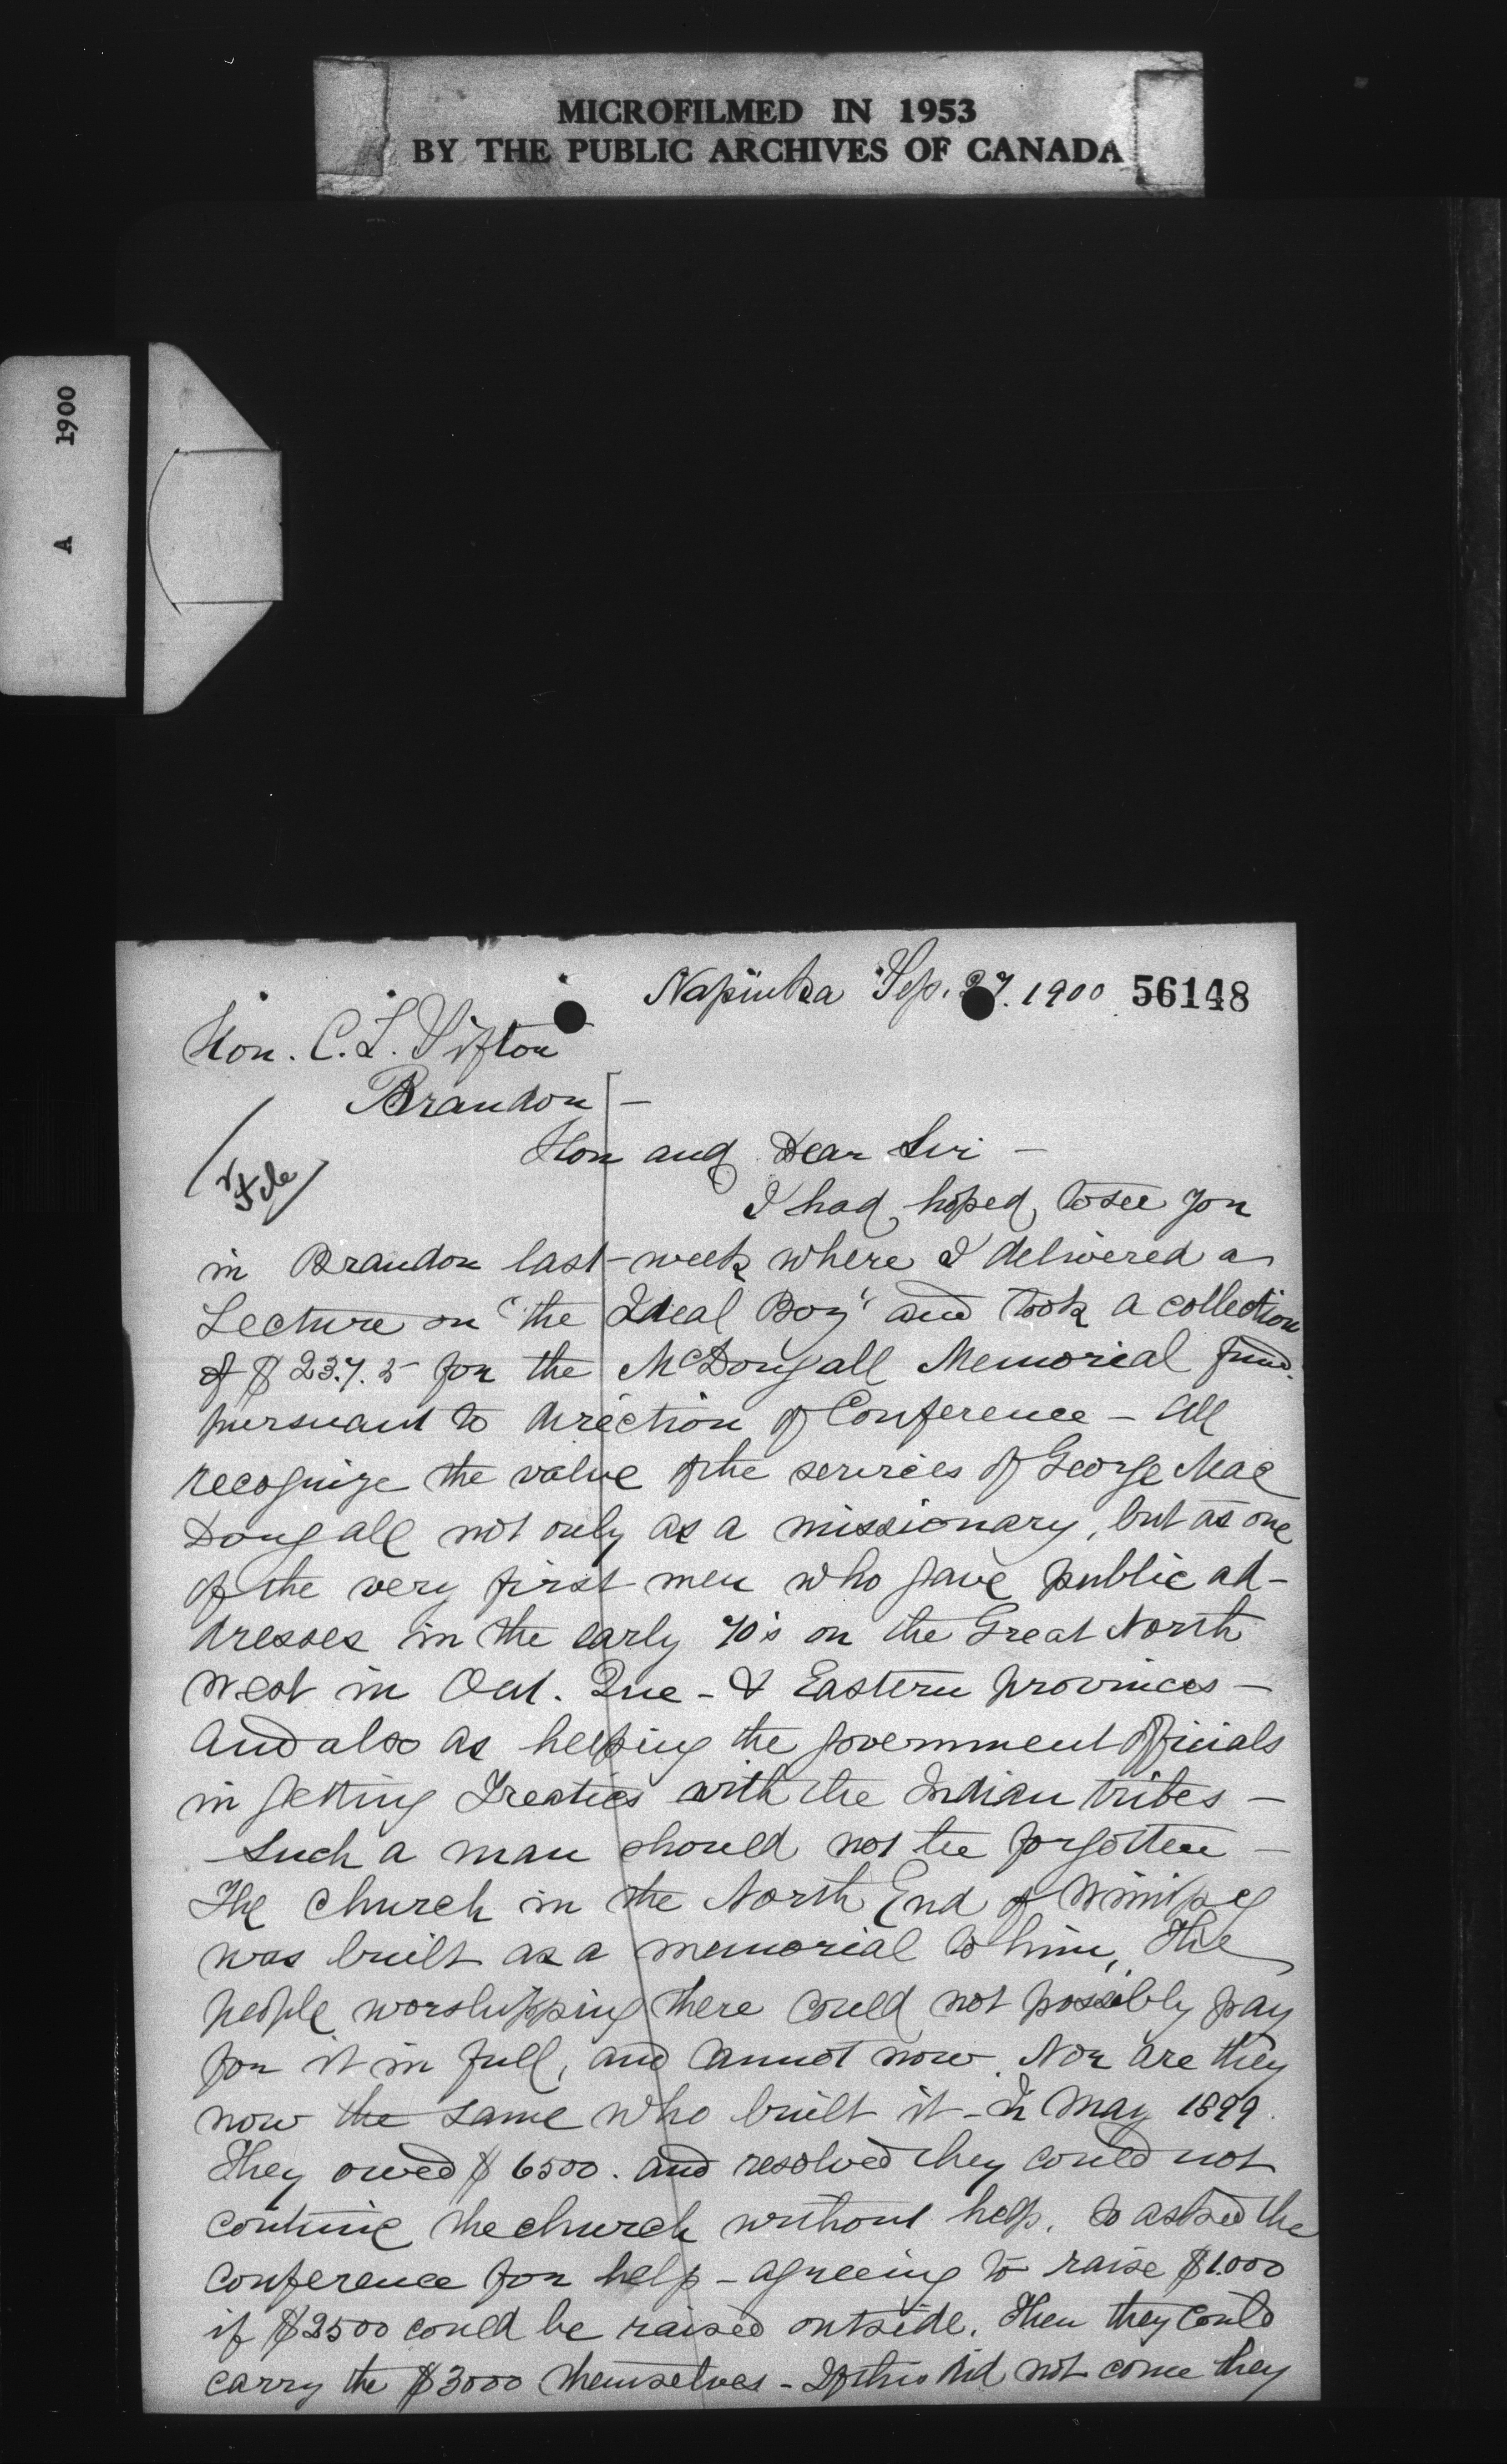 MICROFILMED IN 1953
BY THE PUBLIC ARCHIVES OF CANADA
A 1900
Napinka Sep. 27. 1900 56148
Hon. C. L. Sifton
Brandon —
File
Hon and Dear Sir —
I had hoped to see you
in Brandon last week where I delivered a
Lecture on "the Ideal Boy" and took a collection
of $23.7.5 for the McDougall Memorial fund.
pursuant to direction of Conference — All
recognize the value of the services of George Mac
Dougall not only as a missionary, but as one
of the very first men who gave public ad-
dresses in the early 70's on the Great North
West in Ont. Que - & Eastern provinces —
And also as helping the government officials
in getting Treaties with the Indian tribes —
Such a man should not be forgotten —
The church in the North End of Winnipeg
was built as a memorial to him, The
people worshipping there could not possibly pay
for it in full, and cannot now. Nor are they
now the same who built it - In May 1899
They owed $6500. and resolved they could not
continue the church without help. So asked the
conference for help - agreeing to raise $1.000
if $2500 could be raised outside. Then they could
carry the $3000 themselves - If this did not come they